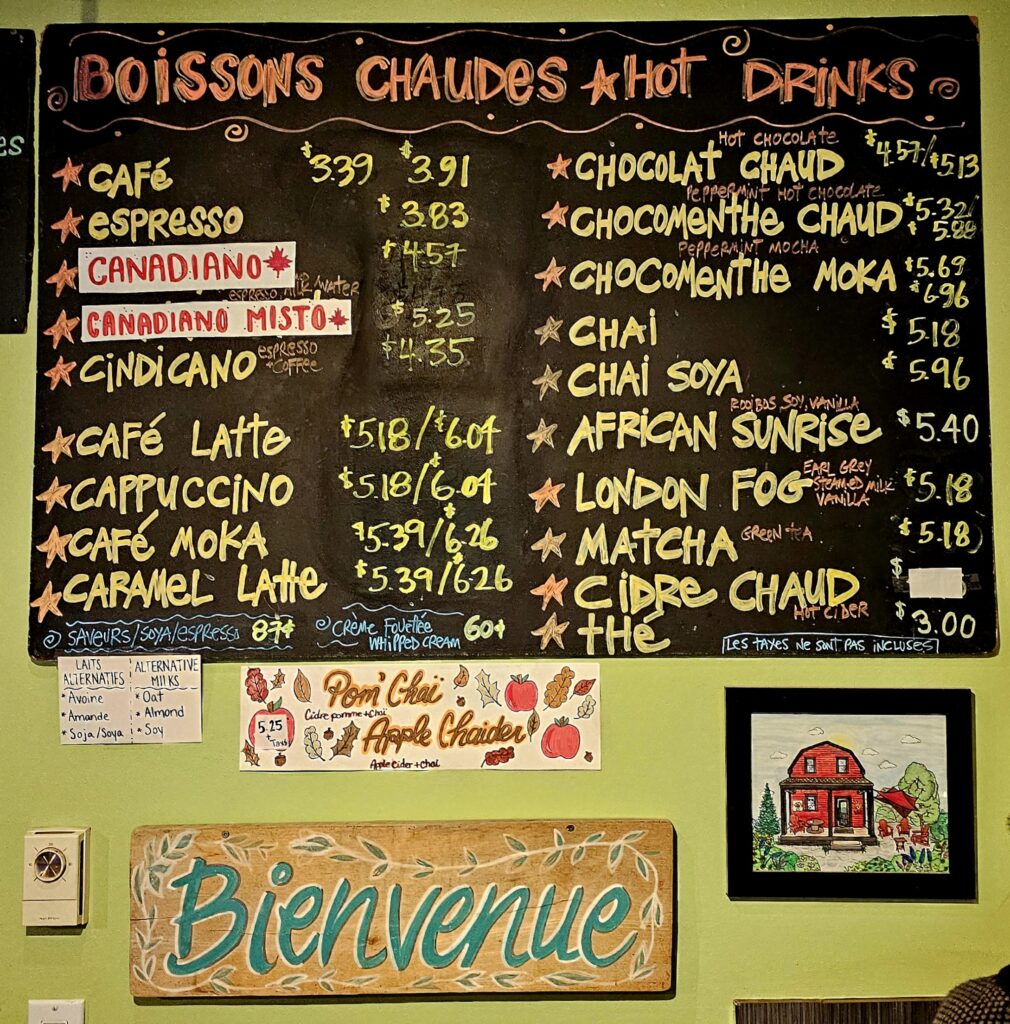 BOISSONS CHAUDES ★ HOT DRINKS
CAFÉ $3.39 $3.91
ESPRESSO $3.83
CANADIANO $4.57
ESPRESSO WATER
CANADIANO MISTO $5.25
CINDICANO ESPRESSO + COFFEE $4.35
CAFÉ LATTE $5.18/$6.04
CAPPUCCINO $5.18/$6.04
CAFÉ MOKA $5.39/$6.26
CARAMEL LATTE $5.39/$6.26
SAVEURS/SOYA/ESPRESSO 87¢
CRÈME FOUETTÉE WHIPPED CREAM 60¢
HOT CHOCOLATE
CHOCOLAT CHAUD $4.57/$5.13
PEPPERMINT HOT CHOCOLATE
CHOCOMENTHE CHAUD $5.32/$5.88
PEPPERMINT MOCHA
CHOCOMENTHE MOKA $5.69 $6.96
CHAI $5.18
CHAI SOYA $5.96
ROOIBOS, SOY, VANILLA
AFRICAN SUNRISE $5.40
LONDON FOG EARL GREY STEAMED MILK VANILLA $5.18
MATCHA GREEN TEA $5.18
CIDRE CHAUD $
HOT CIDER
THÉ $3.00
LES TAXES NE SONT PAS INCLUSES
LAITS ALTERNATIFS
* Avoine
* Amande
* Soja/Soya
ALTERNATIVE MILKS
* Oat
* Almond
* Soy
Pom' Chaï
Cidre pomme + Chaï
5.25 + Taxes
Apple Chaider
Apple Cider + Chai
Bienvenue